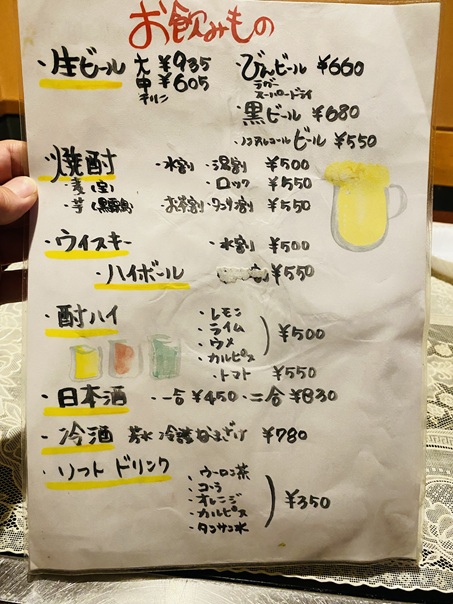 お飲みもの
・生ビール 大 ¥935
中 ¥605
キリン
・びんビール ¥660
ラガー
スーパードライ
・黒ビール ¥680
・ノンアルコールビール ¥550
・焼酎 ・水割 ・湯割 ¥500
・麦(宝) ・ロック ¥550
・芋(黒霧島) ・お茶割 ・ワンコリ割 ¥550
・ウイスキー ・水割 ¥500
・ハイボール ¥550
・酎ハイ
・レモン
・ライム
・ウメ
・カルピス
¥500
・トマト ¥550
・日本酒 ・一合 ¥450 ・二合 ¥830
・冷酒 冷 ¥780
・ソフトドリンク
・ウーロン茶
・コーラ
・オレンジ
・カルピス
・タンサン水
¥350